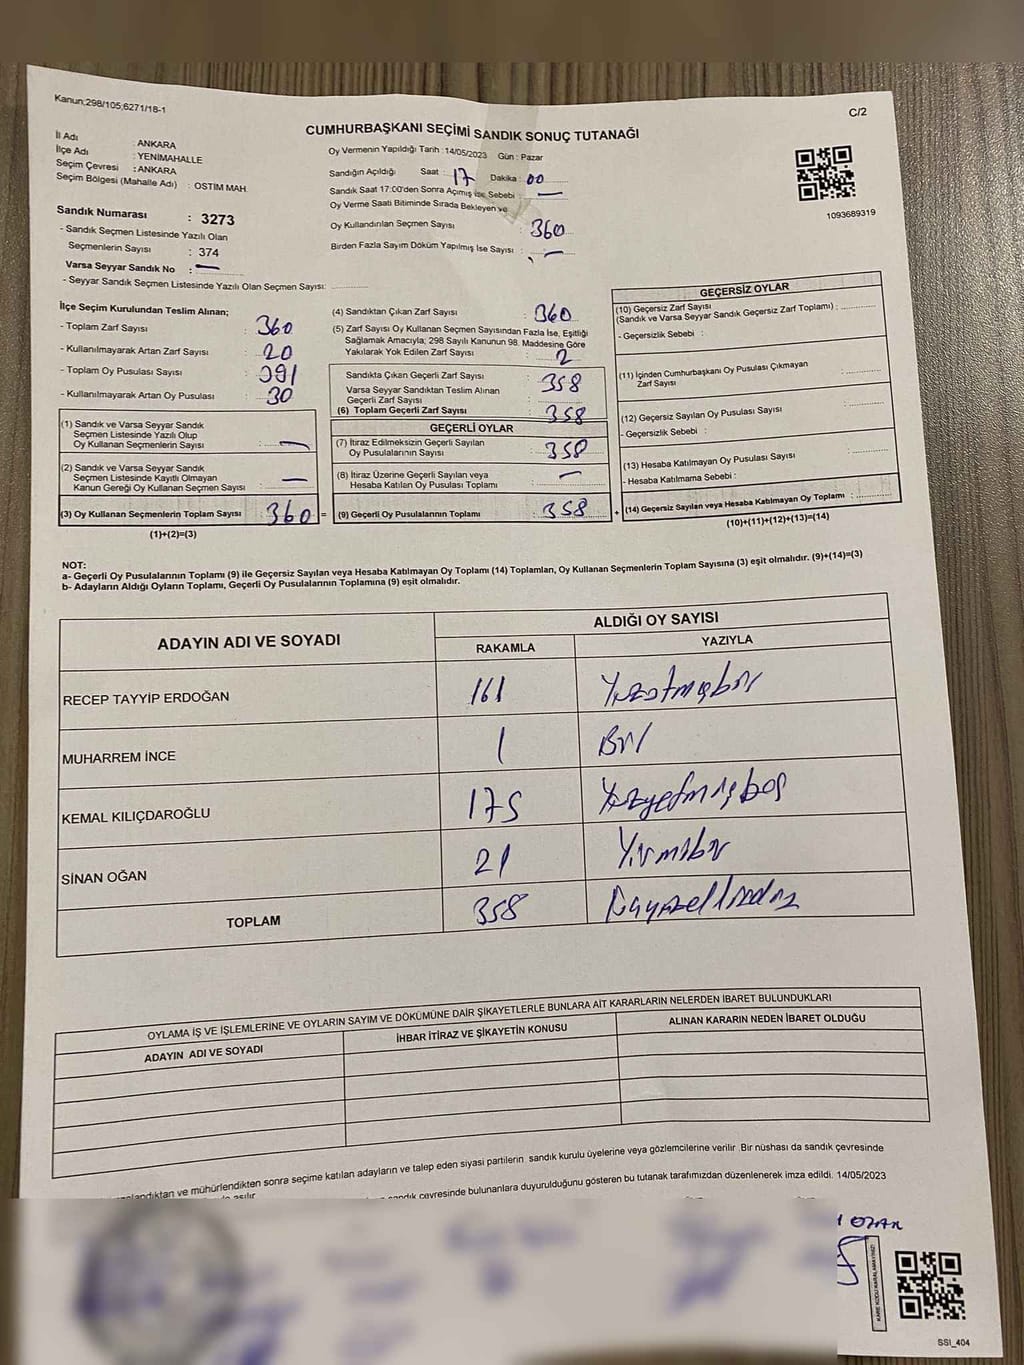 Kanun;298/105;6271/18-1
C/2
CUMHURBAŞKANI SEÇİMİ SANDIK SONUÇ TUTANAĞI
İl Adı : ANKARA
İlçe Adı : YENİMAHALLE
Seçim Çevresi : ANKARA
Seçim Bölgesi (Mahalle Adı) : OSTİM MAH.
Oy Vermenin Yapıldığı Tarih : 14/05/2023 Gün : Pazar
Sandığın Açıldığı Saat : 17 Dakika : 00
Sandık Saat 17:00'den Sonra Açımış İse Sebebi : —
Oy Verme Saati Bitiminde Sırada Bekleyen ve
Oy Kullandırılan Seçmen Sayısı : 360
Birden Fazla Sayım Döküm Yapılmış İse Sayısı : —
1093689319
Sandık Numarası : 3273
- Sandık Seçmen Listesinde Yazılı Olan
Seçmenlerin Sayısı : 374
Varsa Seyyar Sandık No : —
- Seyyar Sandık Seçmen Listesinde Yazılı Olan Seçmen Sayısı:
İlçe Seçim Kurulundan Teslim Alınan;
- Toplam Zarf Sayısı 360
- Kullanılmayarak Artan Zarf Sayısı : 20
- Toplam Oy Pusulası Sayısı : 391
- Kullanılmayarak Artan Oy Pusulası 30
(1) Sandık ve Varsa Seyyar Sandık
Seçmen Listesinde Yazılı Olup
Oy Kullanan Seçmenlerin Sayısı : —
(2) Sandık ve Varsa Seyyar Sandık
Seçmen Listesinde Kayıtlı Olmayan
Kanun Gereği Oy Kullanan Seçmen Sayısı : —
(3) Oy Kullanan Seçmenlerin Toplam Sayısı : 360 =
(1)+(2)=(3)
(4) Sandıktan Çıkan Zarf Sayısı : 360
(5) Zarf Sayısı Oy Kullanan Seçmen Sayısından Fazla İse, Eşitliği
Sağlamak Amacıyla; 298 Sayılı Kanunun 98. Maddesine Göre
Yakılarak Yok Edilen Zarf Sayısı : 2
Sandıkta Çıkan Geçerli Zarf Sayısı : 358
Varsa Seyyar Sandıktan Teslim Alınan
Geçerli Zarf Sayısı
(6) Toplam Geçerli Zarf Sayısı : 358
GEÇERLİ OYLAR
(7) İtiraz Edilmeksizin Geçerli Sayılan
Oy Pusulalarının Sayısı : 358
(8) İtiraz Üzerine Geçerli Sayılan veya
Hesaba Katılan Oy Pusulası Toplamı : —
(9) Geçerli Oy Pusulalarının Toplamı : 358 +
GEÇERSİZ OYLAR
(10) Geçersiz Zarf Sayısı
(Sandık ve Varsa Seyyar Sandık Geçersiz Zarf Toplamı) :
- Geçersizlik Sebebi :
(11) İçinden Cumhurbaşkanı Oy Pusulası Çıkmayan
Zarf Sayısı :
(12) Geçersiz Sayılan Oy Pusulası Sayısı :
- Geçersizlik Sebebi :
(13) Hesaba Katılmayan Oy Pusulası Sayısı :
- Hesaba Katılmama Sebebi :
(14) Geçersiz Sayılan veya Hesaba Katılmayan Oy Toplamı :
(10)+(11)+(12)+(13)=(14)
NOT:
a- Geçerli Oy Pusulalarının Toplamı (9) ile Geçersiz Sayılan veya Hesaba Katılmayan Oy Toplamı (14) Toplamları, Oy Kullanan Seçmenlerin Toplam Sayısına (3) eşit olmalıdır. (9)+(14)=(3)
b- Adayların Aldığı Oyların Toplamı, Geçerli Oy Pusulalarının Toplamına (9) eşit olmalıdır.
ADAYIN ADI VE SOYADI ALDIĞI OY SAYISI
RAKAMLA YAZIYLA
RECEP TAYYİP ERDOĞAN 161 Yüzatmışbir
MUHARREM İNCE 1 Bir
KEMAL KILIÇDAROĞLU 175 Yüzyetmişbeş
SİNAN OĞAN 21 Yirmibir
TOPLAM 358
OYLAMA İŞ VE İŞLEMLERİNE VE OYLARIN SAYIM VE DÖKÜMÜNE DAİR ŞİKAYETLERLE BUNLARA AİT KARARLARIN NELERDEN İBARET BULUNDUKLARI
ADAYIN ADI VE SOYADI İHBAR İTİRAZ VE ŞİKAYETİN KONUSU ALINAN KARARIN NEDEN İBARET OLDUĞU
ve mühürlendikten sonra seçime katılan adayların ve talep eden siyasi partilerin sandık kurulu üyelerine veya gözlemcilerine verilir. Bir nüshası da sandık çevresinde
sandık çevresinde bulunanlara duyurulduğunu gösteren bu tutanak tarafımızdan düzenlenerek imza edildi. 14/05/2023
KARE KODU KARALAMAYINIZ!
SSI_404